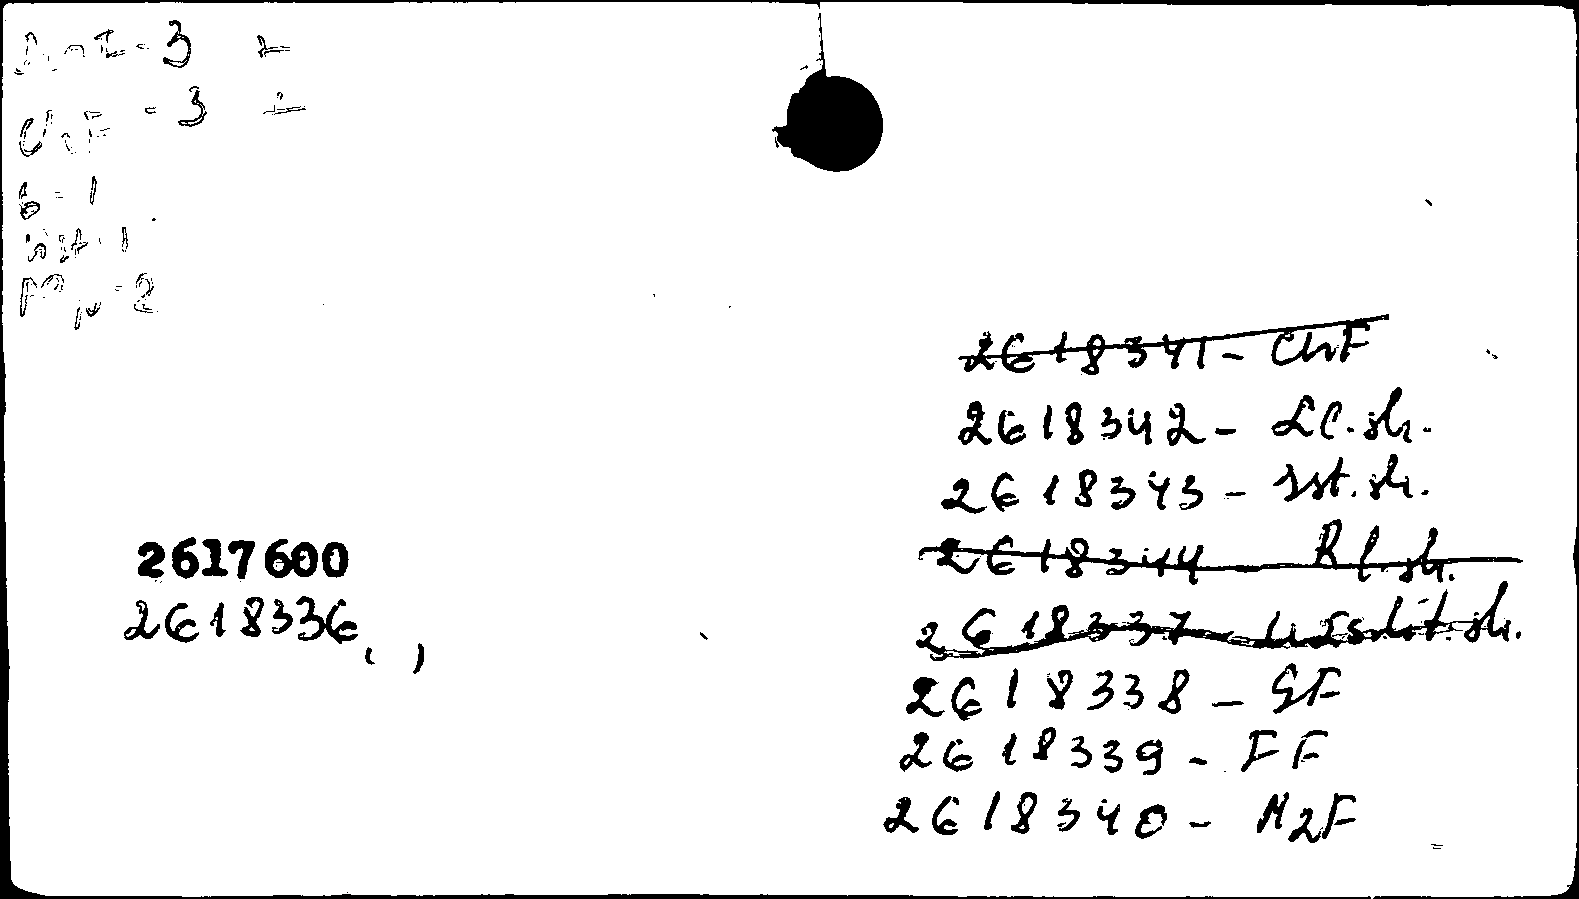 - 3
ChF - 3
6 = 1
- 2
2617600
2618336,
2618341 - ChF
2618342 - LC. sh.
2618343 - Ist. sh.
2618344 - Rl. sh.
2618337 -
2618338 - GF
2618339 - FF
2618340 - M2F